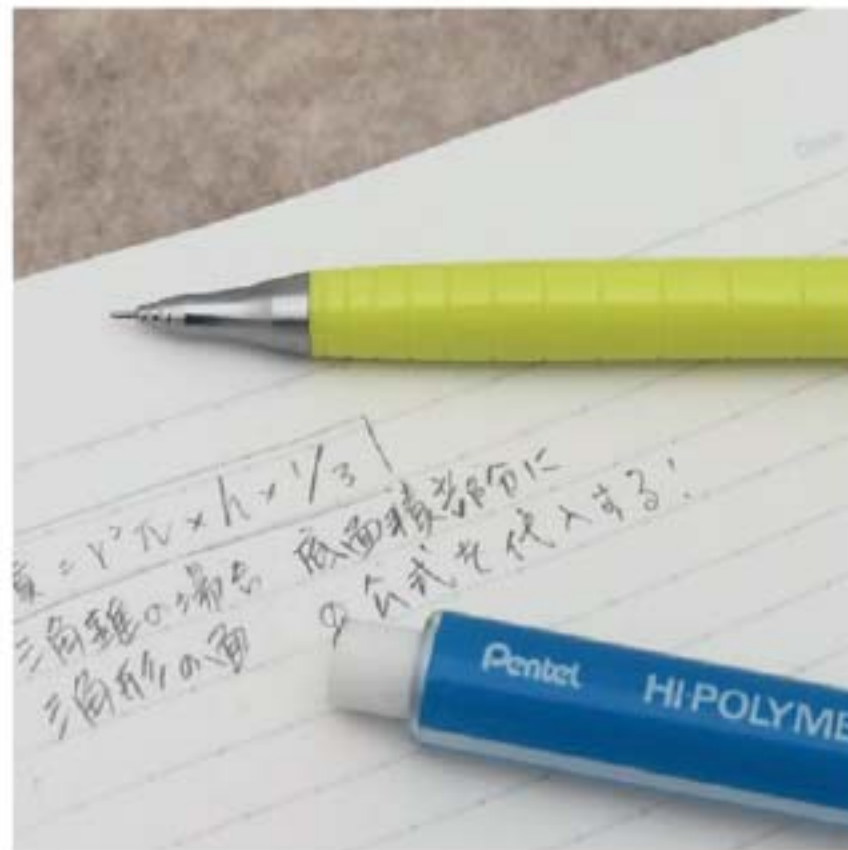 積=r²π×h×1/3
三角錐の場合 底面積部分に
三角形の面 の公式を代入する!
Pentel HI-POLYME